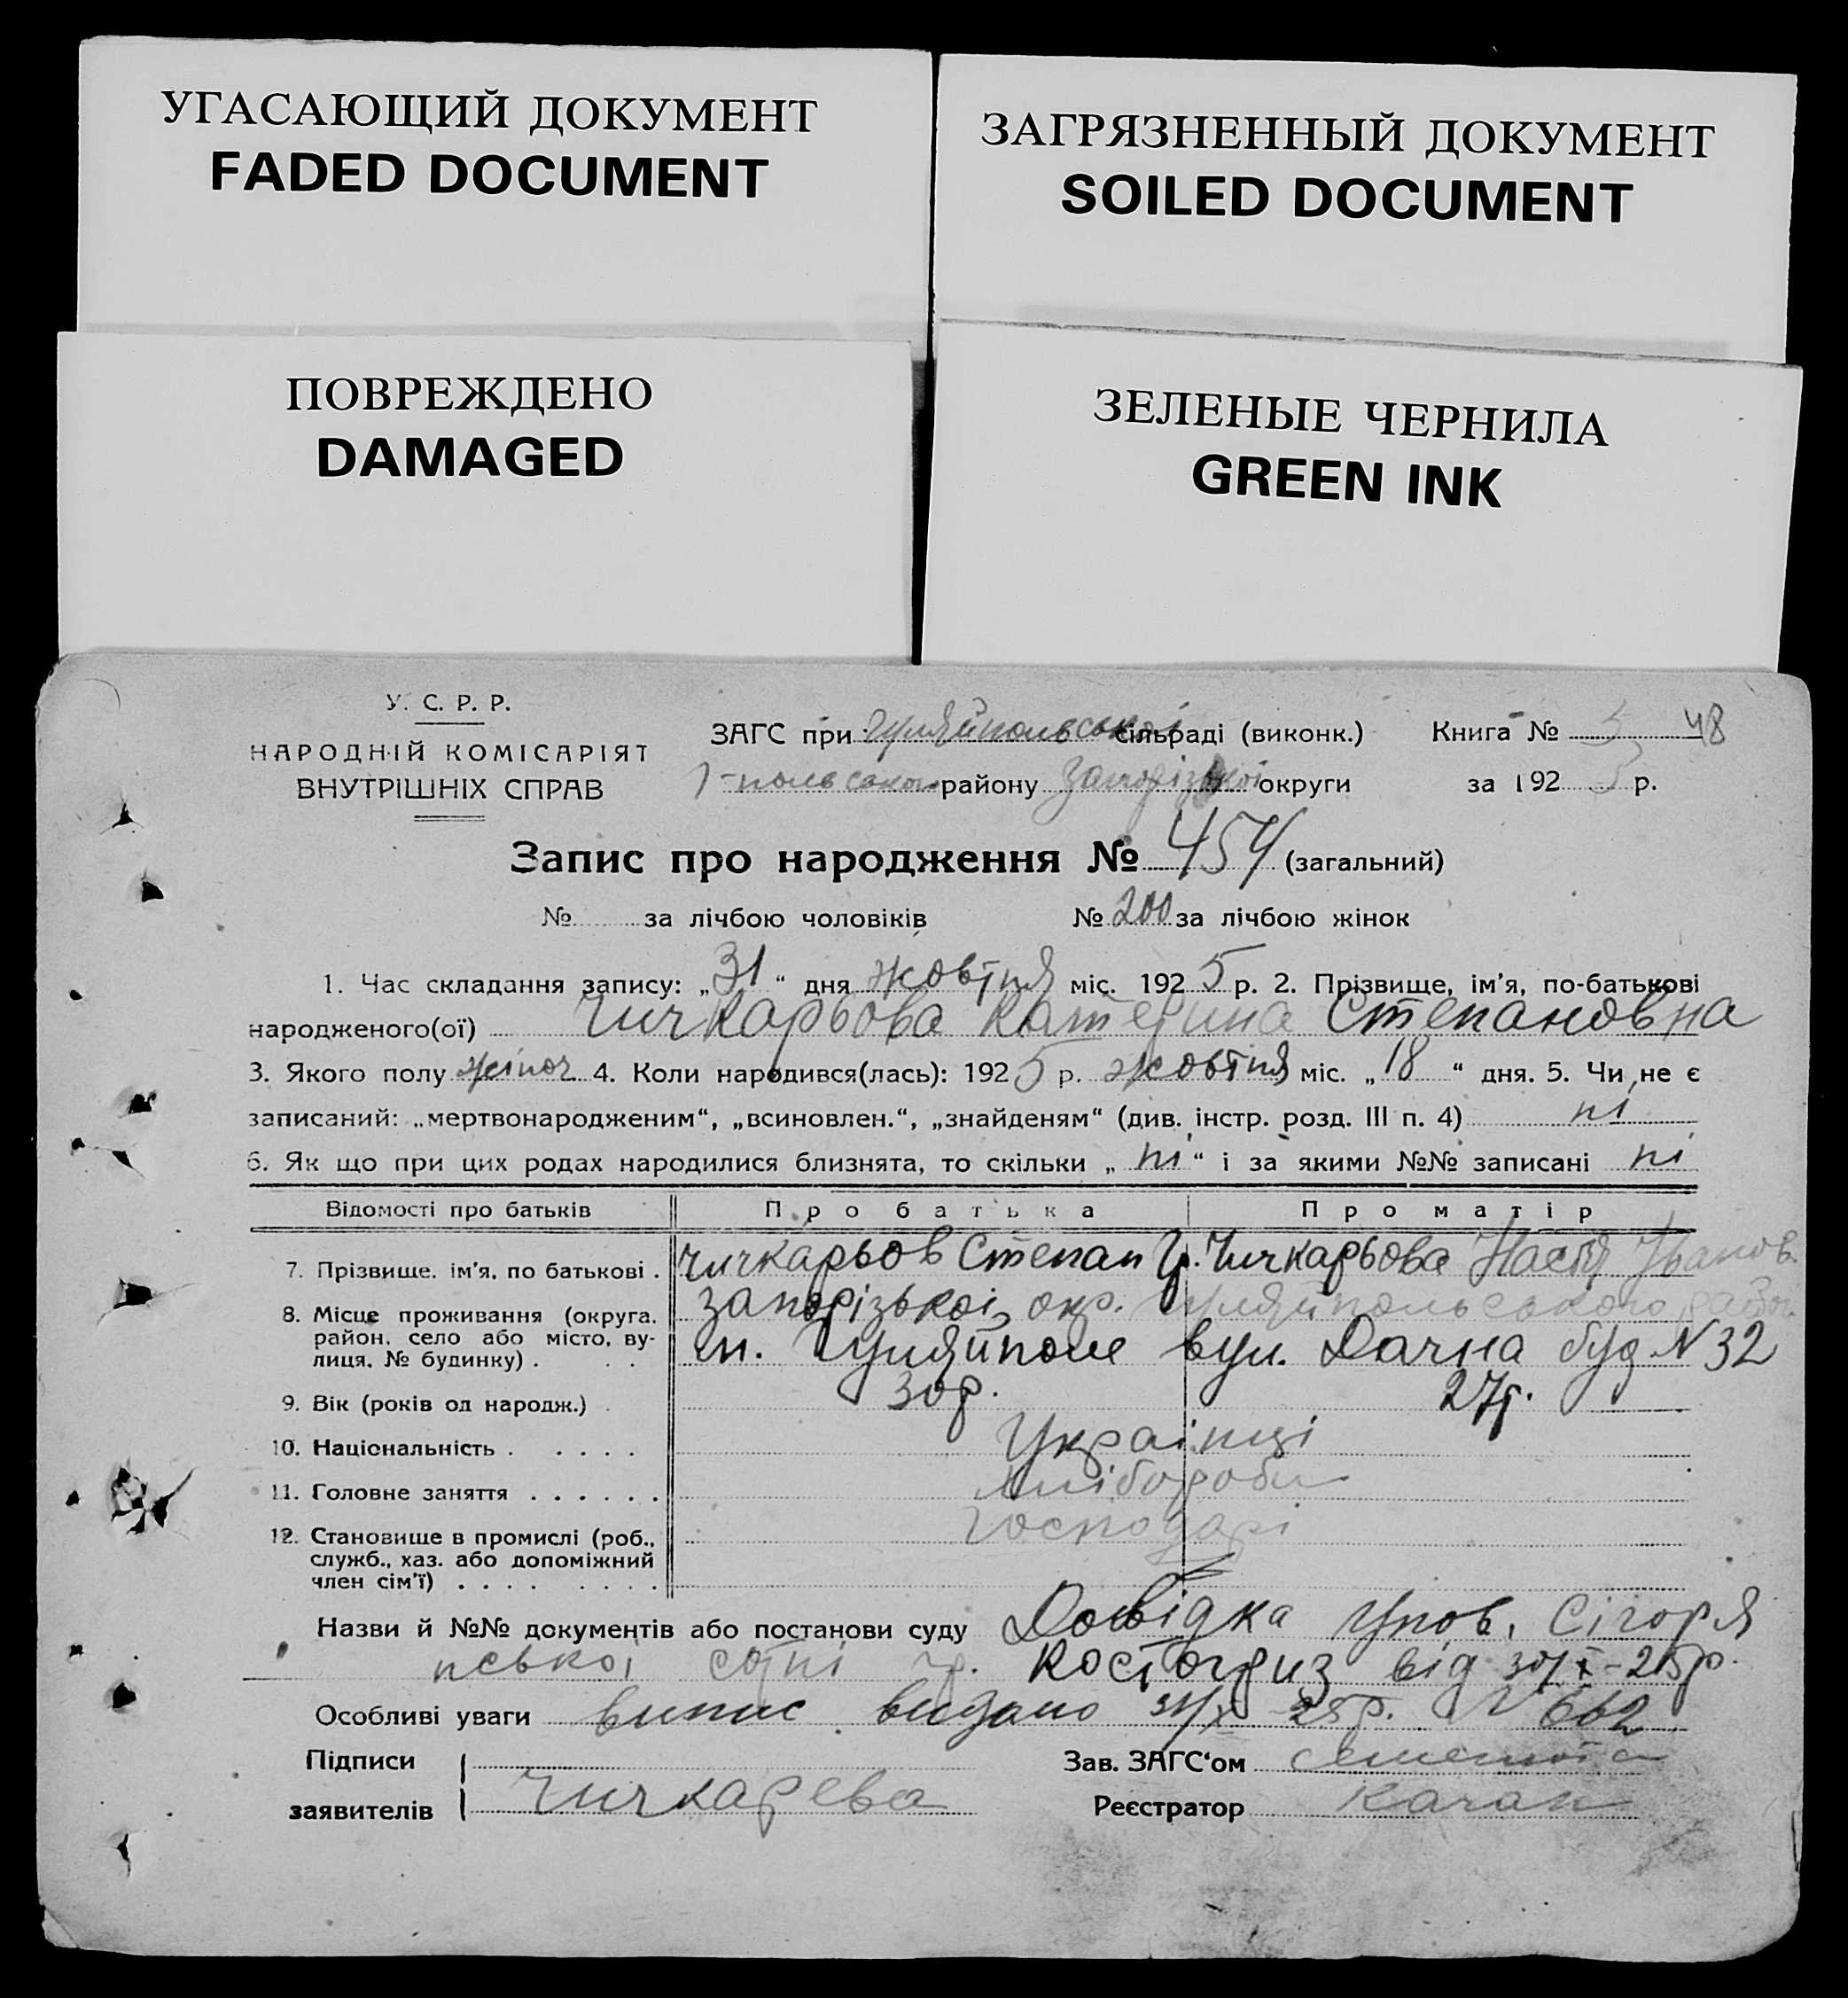 УГАСАЮЩИЙ ДОКУМЕНТ
FADED DOCUMENT
ЗАГРЯЗНЕННЫЙ ДОКУМЕНТ
SOILED DOCUMENT
ПОВРЕЖДЕНО
DAMAGED
ЗЕЛЕНЫЕ ЧЕРНИЛА
GREEN INK
У. С. Р. Р.
НАРОДНІЙ КОМІСАРІЯТ
ВНУТРІШНІХ СПРАВ
ЗАГС при Гуляйпольської сільраді (виконк.) Книга № 5 48
Г-польського району Запорізької округи за 192 5 р.
Запис про народження № 454 (загальний)
№ за лічбою чоловіків № 200 за лічбою жінок
1. Час складання запису: „31“ дня жовтня міс. 1925 р. 2. Прізвище, ім'я, по-батькові
народженого(ої) Чичкарьова Катерина Степановна
3. Якого полу жіноч 4. Коли народився(лась): 1925 р. жовтня міс. „18“ дня. 5. Чи не є
записаний: „мертвонародженим“, „всиновлен.“, „знайденям“ (див. інстр. розд. III п. 4) ні
6. Як що при цих родах народилися близнята, то скільки „ні“ і за якими №№ записані ні
Відомості про батьків Про батька Про матір
7. Прізвище, ім'я, по батькові . Чичкарьов Степан Гр. Чичкарьова Настя Іванов.
8. Місце проживання (округа, район, село або місто, вулиця, № будинку) . Запорізької окр. Гуляйпольського район.
м. Гуляйполе вул. Дачна буд N 32
9. Вік (років од народж.) 30р. 27р.
10. Національність . . . . . Українці
11. Головне заняття . . . . . . Хлібороби
12. Становище в промислі (роб., Господарі
служб., хаз. або допоміжний
член сім'ї) . . . . . . . .
Назви й №№ документів або постанови суду Довідка Упов. Сігоря
нської сотні гр. Костогриз від 30/X-25р.
Особливі уваги випис видано 31/X 25р. N 662
Підписи Зав. ЗАГС'ом
заявителів Чичкарева Реєстратор Качан